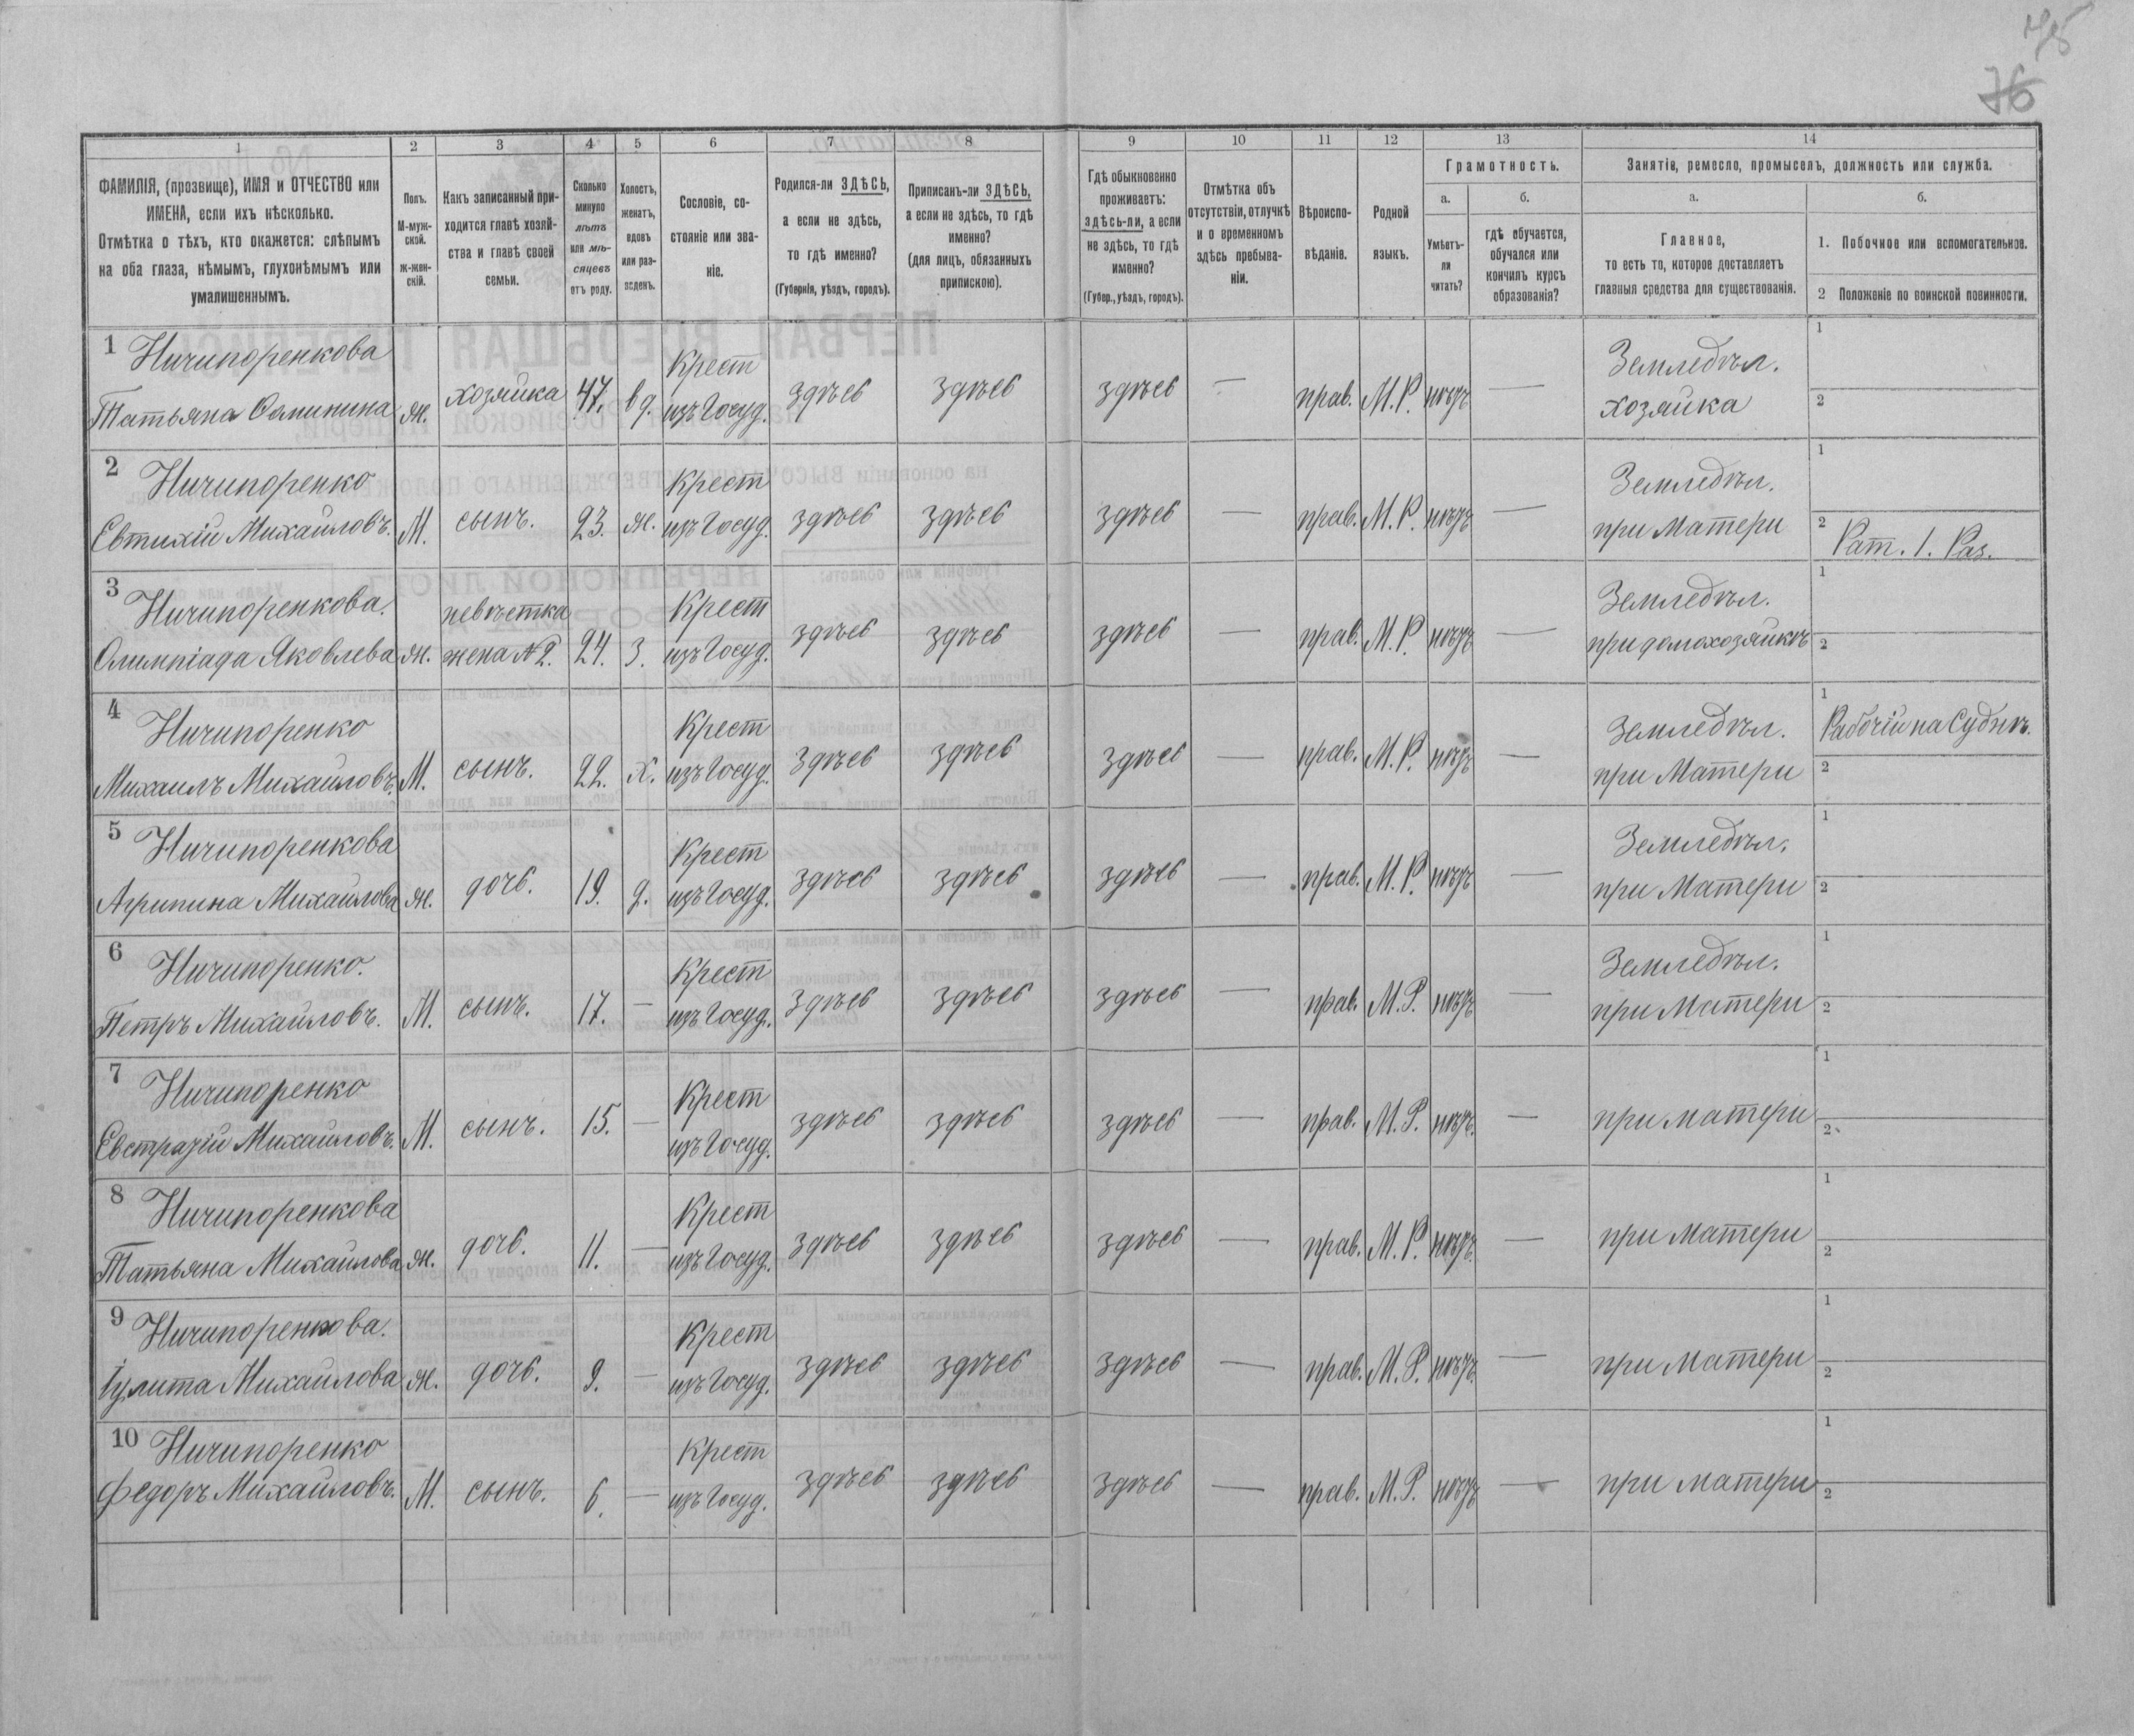 75
76
1 2 3 4 5 6 7 8 9 10 11 12 13 14
ФАМИЛІЯ, (прозвище), ИМЯ и ОТЧЕСТВО или
ИМЕНА, если ихъ нѣсколько.
Отмѣтка о тѣхъ, кто окажется: слѣпымъ
на оба глаза, нѣмымъ, глухонѣмымъ или
умалишеннымъ.
Полъ.
М-муж-
ской.
ж-жен-
скій.
Какъ записанный при-
ходится главѣ хозяй-
ства и главѣ своей
семьи.
Сколько
минуло
лѣтъ
или мѣ-
сяцевъ
отъ роду.
Холостъ,
женатъ,
вдовъ
или раз-
веденъ.
Сословіе, со-
стояніе или зва-
ніе.
Родился-ли ЗДѢСЬ,
а если не здѣсь,
то гдѣ именно?
(Губернія, уѣздъ, городъ).
Приписанъ-ли ЗДѢСЬ,
а если не здѣсь, то гдѣ
именно?
(для лицъ, обязанныхъ
припискою).
Гдѣ обыкновенно
проживаетъ:
здѣсь-ли, а если
не здѣсь, то гдѣ
именно?
(Губер., уѣздъ, городъ).
Отмѣтка объ
отсутствіи, отлучкѣ
и о временномъ
здѣсь пребыва-
ніи.
Вѣроиспо-
вѣданіе.
Родной
языкъ.
Грамотность.
а.
Умѣетъ-
ли
читать?
б.
гдѣ обучается,
обучался или
кончилъ курсъ
образованія?
Занятія, ремесло, промыселъ, должность или служба.
а.
Главное,
то есть то, которое доставляетъ
главныя средства для существованія.
б.
1. Побочное или вспомогательное.
2 Положеніе по воинской повинности.
1 Ничипоренкова Крест Земледѣл. 1
Татьяна Фоминина ж. хозяйка 47. вд. изъ Госуд. здѣсь здѣсь здѣсь — прав. М.Р. нѣтъ — хозяйка 2
2 Ничипоренко Крест Земледѣл. 1
Евтихій Михайловъ. М. сынъ. 23. ж. изъ Госуд. здѣсь здѣсь здѣсь — прав. М.Р. нѣтъ — при Матери 2 Рат. 1. Раз.
3 Ничипоренкова. невѣстка Крест Земледѣл. 1
Олимпіада Яковлева ж. жена №2. 24. З. изъ Госуд. здѣсь здѣсь здѣсь — прав. М.Р. нѣтъ — при домохозяйкѣ 2
4 Ничипоренко Крест Земледѣл. 1 Рабочій на Суднѣ.
Михаилъ Михайловъ. М. сынъ. 22. х. изъ Госуд. здѣсь здѣсь здѣсь — прав. М.Р. нѣтъ — при Матери 2
5 Ничипоренкова Крест Земледѣл. 1
Агрипина Михайлова ж. дочь. 19. д. изъ Госуд. здѣсь здѣсь здѣсь — прав. М.Р. нѣтъ — при Матери 2
6 Ничипоренко. Крест Земледѣл. 1
Петръ Михайловъ. М. сынъ. 17. — изъ Госуд. здѣсь здѣсь здѣсь — прав. М.Р. нѣтъ — при Матери 2
7 Ничипоренко Крест 1
Евстратій Михайловъ. М. сынъ. 15. — изъ Госуд. здѣсь здѣсь здѣсь — прав. М.Р. нѣтъ. — при матери 2
8 Ничипоренкова Крест 1
Татьяна Михайлова ж. дочь. 11. — изъ Госуд. здѣсь здѣсь здѣсь — прав. М.Р. нѣтъ. — при Матери 2
9 Ничипоренкова. Крест 1
Іулита Михайлова ж. дочь. 9. — изъ Госуд. здѣсь здѣсь здѣсь — прав. М.Р. нѣтъ. — при Матери 2
10 Ничипоренко Крест 1
Федоръ Михайловъ. М. сынъ. 6. — изъ Госуд. здѣсь здѣсь здѣсь — прав. М.Р. нѣтъ — при матери 2